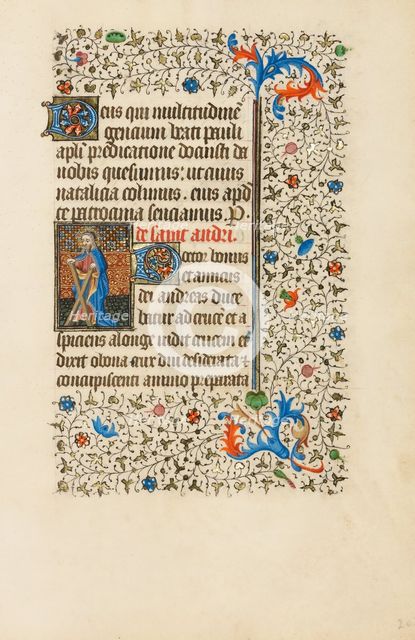 Deus qui multitudinē
gencium beati pauli
apli predicatione docuisti da
nobis quesumus: ut cuius
natalicia colimus. eius apud
te patrocinia senciamus. P.
de saint andri.
Doctor bonus
et amicus
dei andreas duce
betur ad cruce et a
spiciens alonge vidit crucem et
dixit o bona crux diu desiderata et
concupiscenti animo preparata
Heritage
Heritage